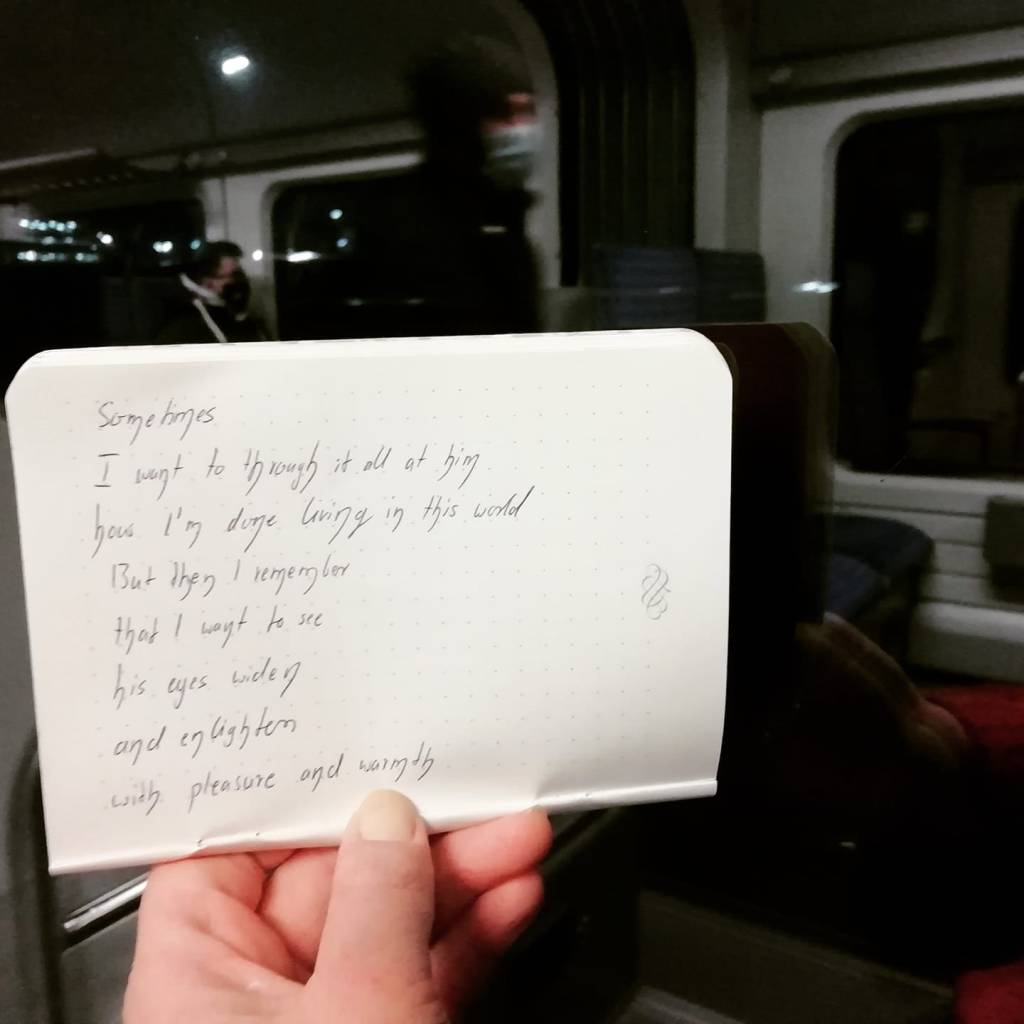 Sometimes
I want to through it all at him
how I'm done living in this world
But then I remember
that I want to see
his eyes widen
and enlighten
with pleasure and warmth